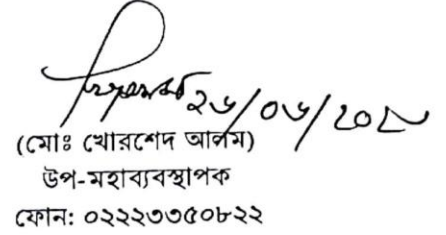 (মোঃ খোরশেদ আলম)
উপ-মহাব্যবস্থাপক
ফোন: ০২২২৩৩৫০৮২২